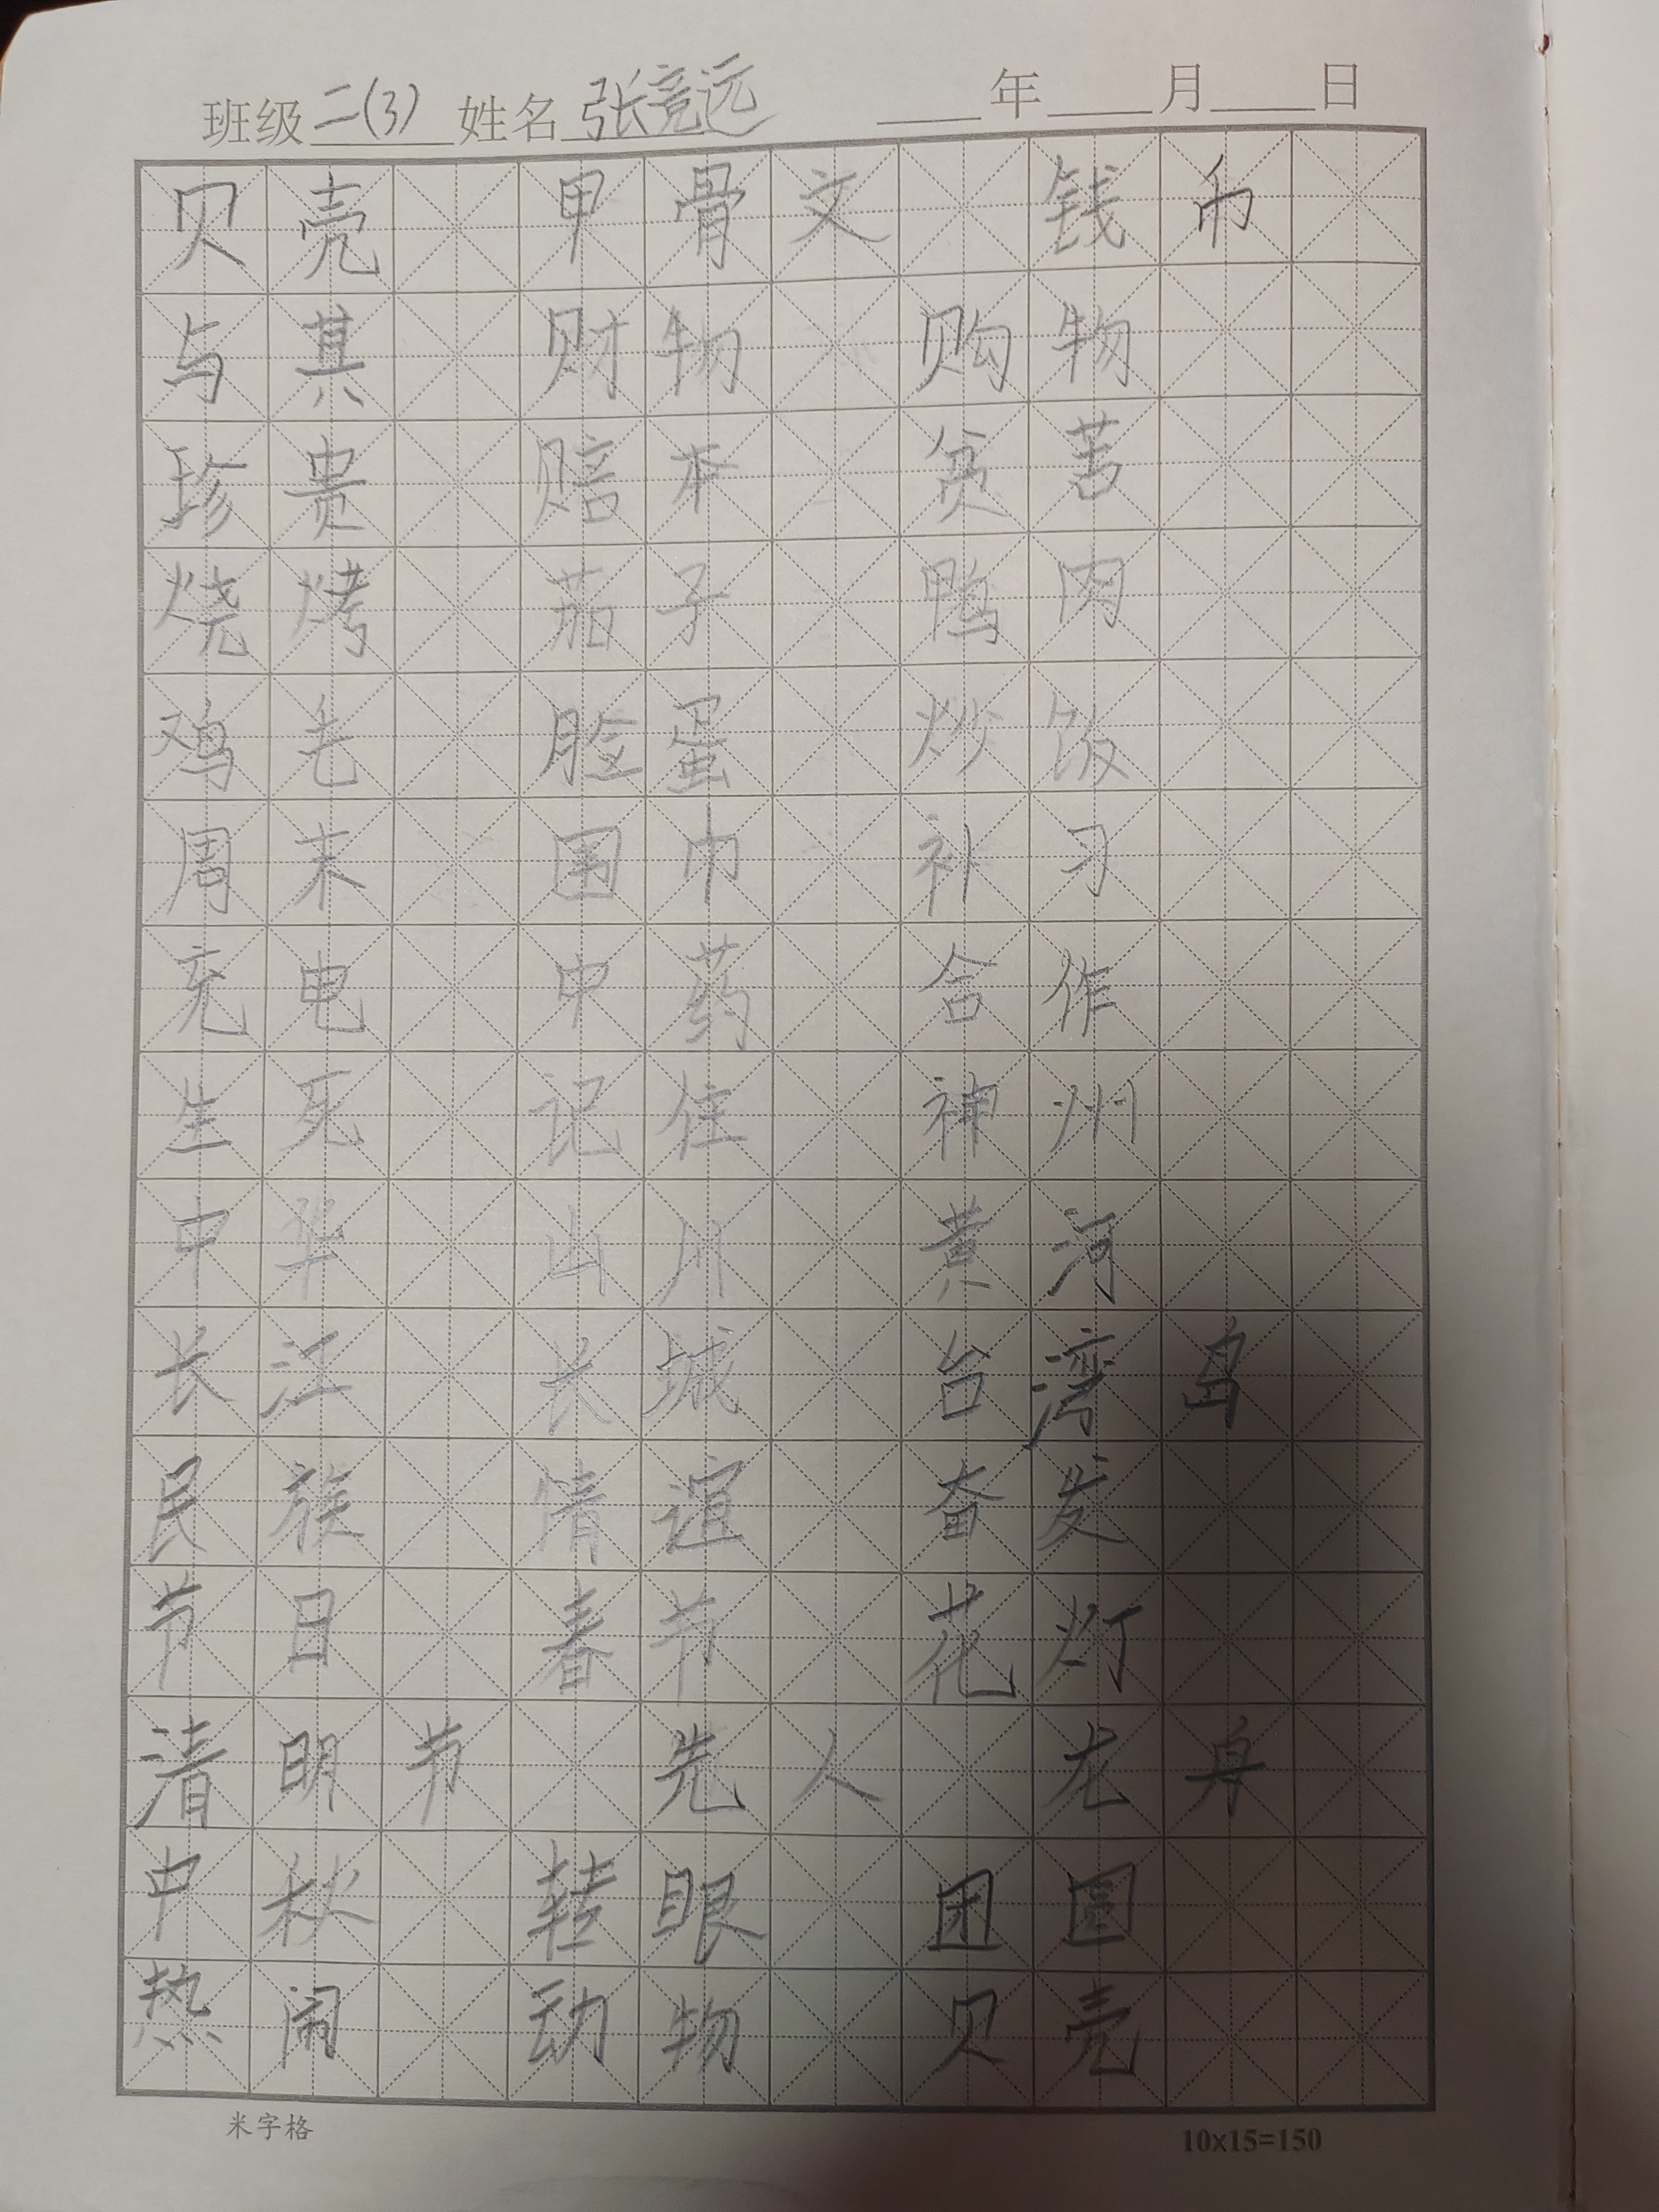 班级 二(3) 姓名 张竞远 年 月 日
贝壳 甲骨文 钱币
与其 财物 购物
珍贵 赔本 贫苦
烧烤 茄子 鸭肉
鸡毛 脸蛋 炒饭
周末 围巾 补习
充电 中药 合作
生死 记住 神州
中华 山川 黄河
长江 长城 台湾岛
民族 情谊 奋发
节日 春节 花灯
清明节 先人 龙舟
中秋 转眼 团圆
热闹 动物 贝壳
米字格 10x15=150